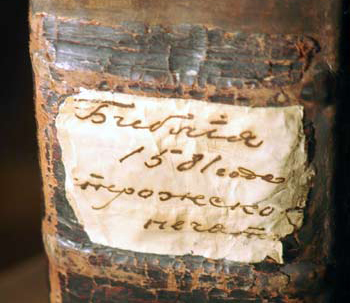 Библия
1581 года
острожской
печати